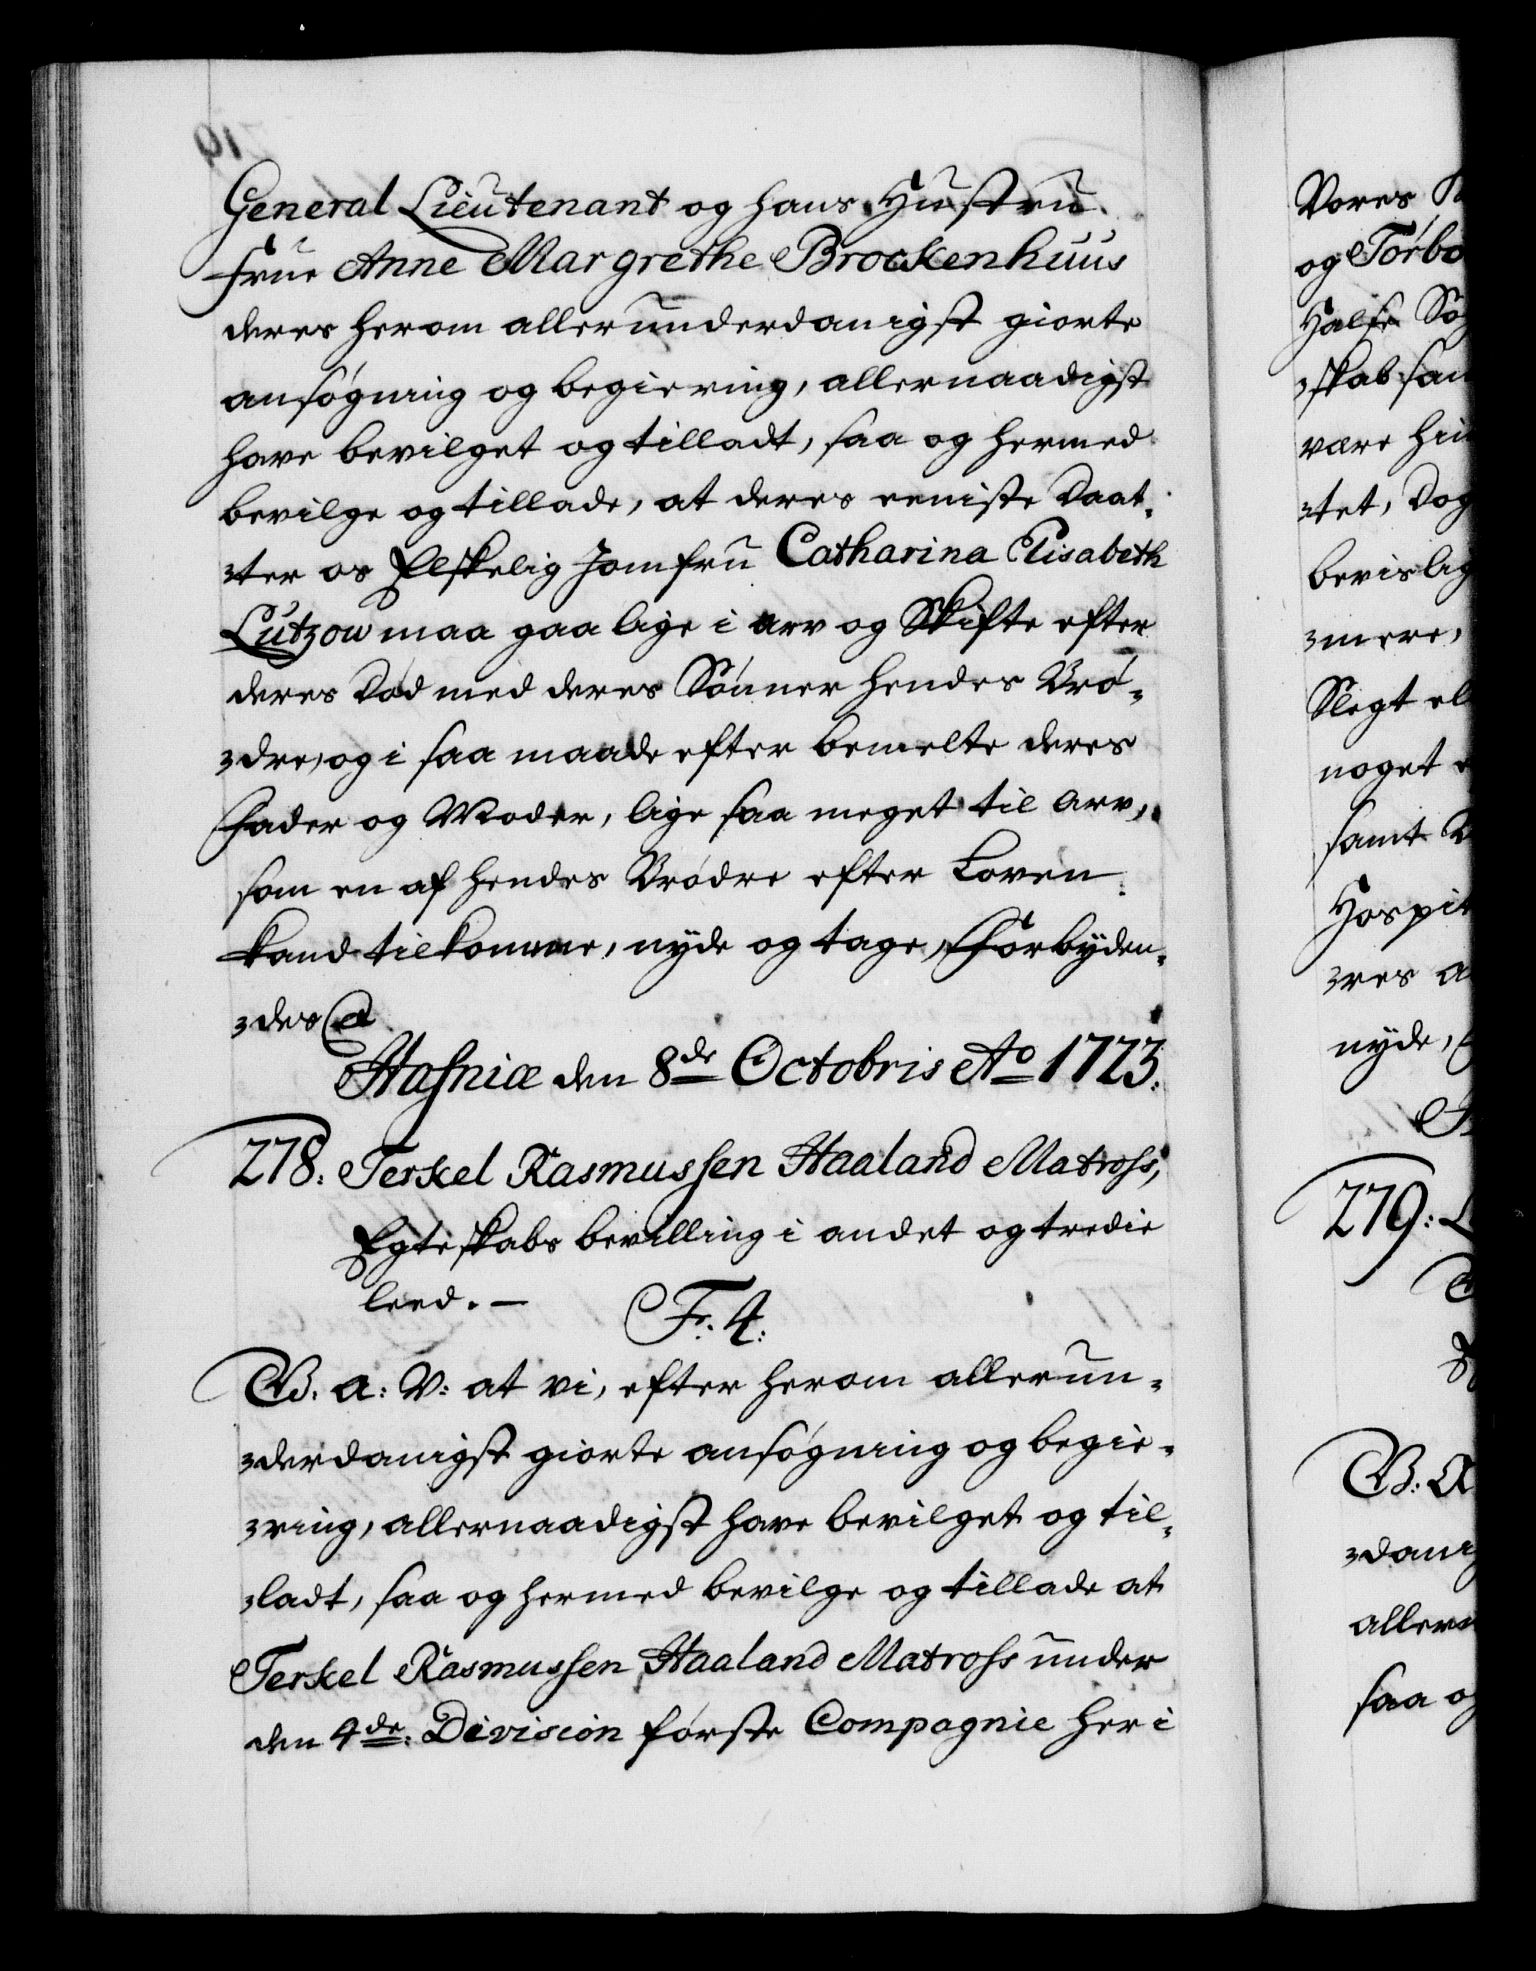 General Lieutenant og hans Hustru
Frue Anne Margrethe Brockenhuus
deres herom allerunderdanigst giorte
ansøgning og begiering, allernaadigst
have bevilget og tilladt, saa og hermed
bevilge og tillade, at deres eeniste Daat-
-ter os Elskelig Jomfru Catharina Elisabeth
Lützow maa gaa lige i arv og Skifte efter
deres Død med deres Sønner hendes Brø-
-dre, og i saa maade efter bemelte deres
Fader og Moder, lige saa meget til Arv,
som en af hendes Brødre efter Loven
kand tilkomme, nyde og tage, Forbyden-
-des &
Hafniæ den 8de Octobris Ao 1723.
278. Terkel Rasmussen Haaland Matross,
Egteskabs bevilling i andet og tredie
leed. —
F. 4.
G. a: V: at vi, efter herom allerun-
-derdanigst giorte ansøgning og begie-
-ring, allernaadigst have bevilget og til-
-ladt, saa og hermed bevilge og tillade at
Terkel Rasmussen Haaland Matross under
den 4de Division første Compagnie her i
Vores
og Torbo
Halfr
-skab
være
-tet, Dog
bevislig
-mere,
Slegt
noget
samt
Hospit
-res
nyde,
279:
-danig
saa og